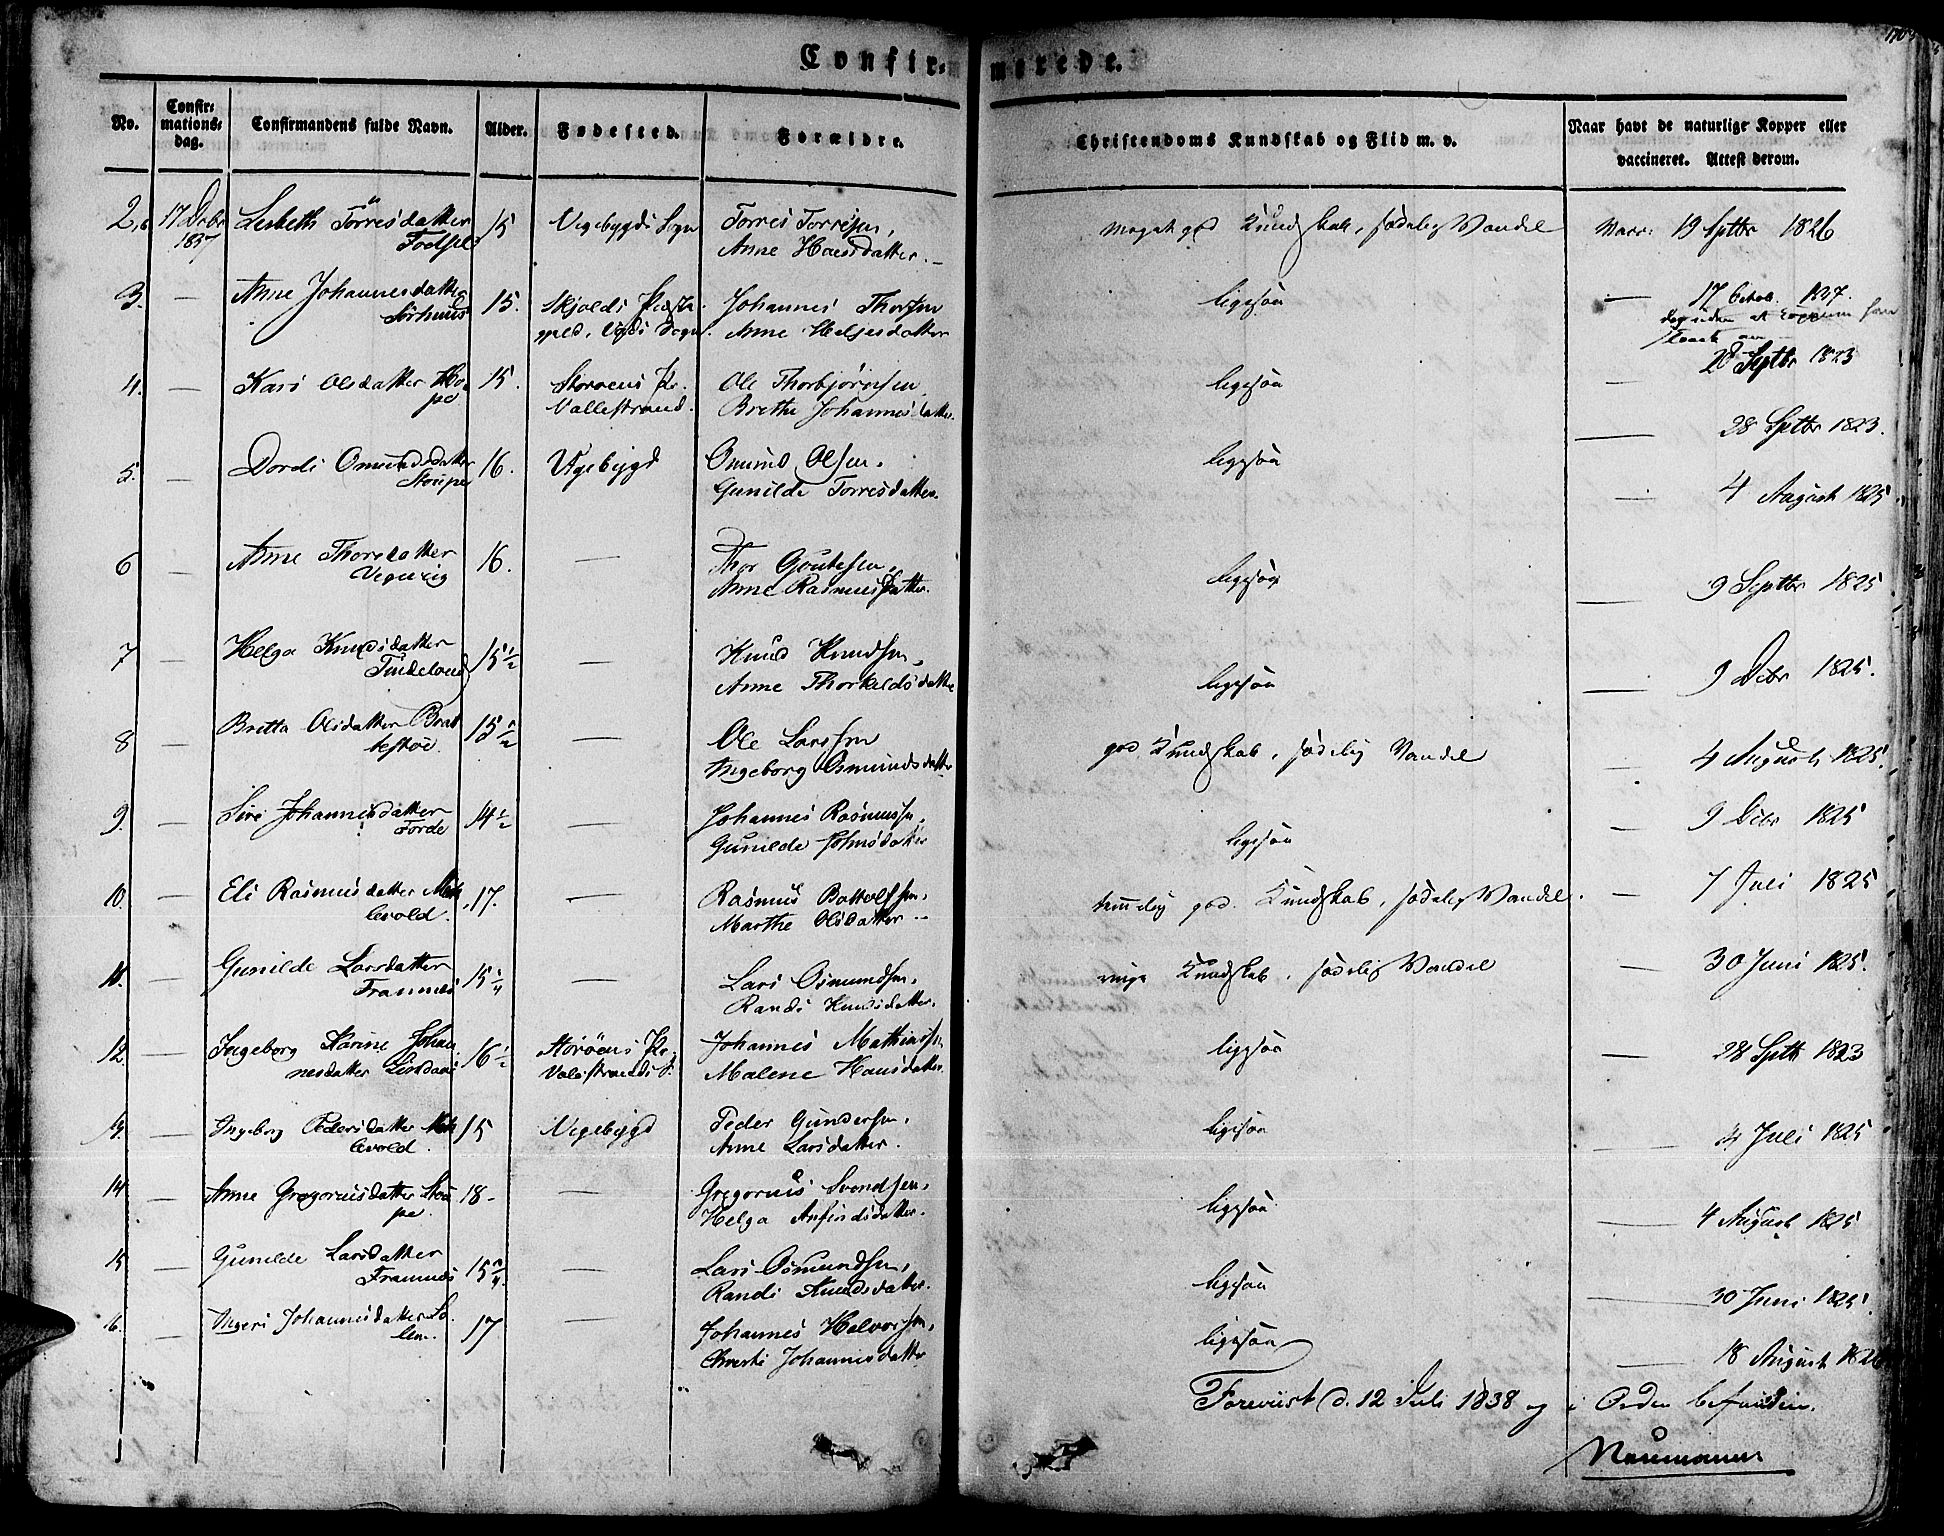 Confir= merede.
No. Confir= mations= dag. Confirmandens fulde Navn. Alder. Fødested. Forældre. Christendoms Kundskab og Flid m. v. Naar havt de naturlige Kopper eller vaccineret. Attest derom.
2, 17 Decbr 1837 Lisbeth Törresdatter 15 Vigebygds Sogn Torres Torresen, Anne Hansdatter. meget god Kundskab, sædelig Vandel Vacc: 19 Septbr 1826
3. — Anne Johannesdatter 15. Skjolds Præste gjeld, Vads Sogn. Johannes Thorsen Anne Helgesdatter ligesaa — 17 1837.
4. — Kari Olsdatter Hope 15. Storöens Pr. Vallestrand. Ole Thorbjørnsen Bretha Johannesdatter. ligesaa — 28 Septbr 1823
— 28 Septbr 1823.
5. — Dordi Omundsdatter Stöupe 16. Vigebygd Omund Olsen. Gunilde Torresdatter. ligesaa — 4 August 1825
6 — Anne Thorsdatter 16. — Thor Goutesen, Anne Rasmusdatter. ligesaa — 9 Septbr 1825
7 — Helga Knudsdatter Tindeland 15½ — Knud Knudsen, Anne Thorkeldsdatter ligesaa — 9 Dcbr 1825.
8 — Britta Olsdatter Brat testöe. 15½ — Ole Larssen Ingeborg Osmundsdatter god Kundskab, sædelig Vandel — 4 August 1825.
9. — Siri Johannesdatter Førde 14½ — Johannes Rasmussen, Gunilde Johnsdatter ligesaa — 9 Dcbr 1825
10. — Eli Rasmusdatter Mæk levold. 17. — Rasmus Bottolfsen, Marthe Olsdatter temmelig god Kundskab, sædelig Vandel. — 7 Juli 1825
11. — Gunilde Larsdatter Framnes 15¼ — Lars Osmundsen, Randi Knudsdatter. ringe Kundskab, sædelig Vandel — 30 Juni 1825.
12. — Ingeborg Karine Johan nesdatter 16½ Storöens Pr. Valestrands S. Johannes Mathiassen Malene Hansdatter. ligesaa — 28 Septb 1823
— Ingeborg Pedersdatter Mæk levold. 15 Vigebygd Peder Gundersen, Anne Larsdatter. ligesaa — 4 Juli 1825
14 — Anne Gregoriusdatter Stöu pe. 18 — Gregorius Svendsen, Helga Anfindsdatter. ligesaa. — 4 August 1825
15 — Gunilde Larsdatter Framnes 15¾ — Lars Osmundsen, Randi Knudsdatter. ligesaa — 30 Juni 1825.
16. — Ingeri Johannesdatter 17 — Johannes Halvorsen, Christi Johannesdatter ligesaa — 18 August 1826
Foreviist d. 12 Juli 1838 og i Orden befunden.
Neumann